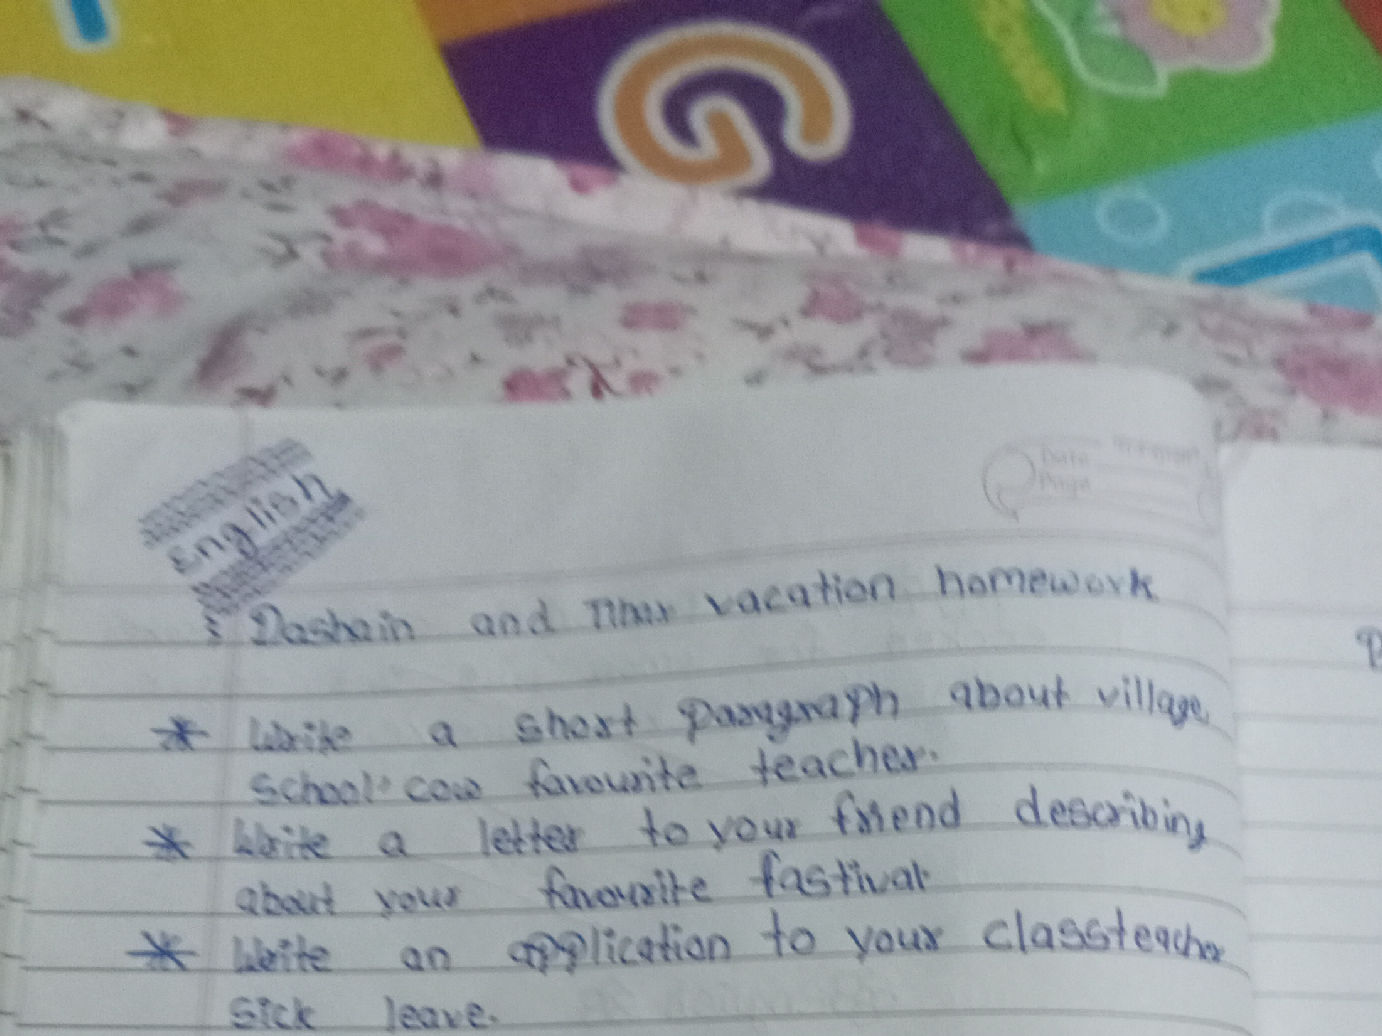 G
English
Date
Page
Dashain and Tihar vacation homework
* Write a short paragraph about village,
school cow favourite teacher.
* Write a letter to your friend describing
about your favourite fastival
* Write an application to your classteacher
sick leave.